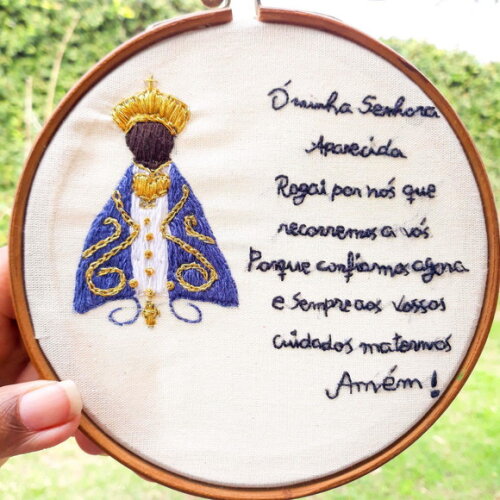 Ó minha Senhora
Aparecida
Rogai por nós que
recorremos a vós
Porque confiamos agora
e sempre aos vossos
cuidados maternos
Amém!